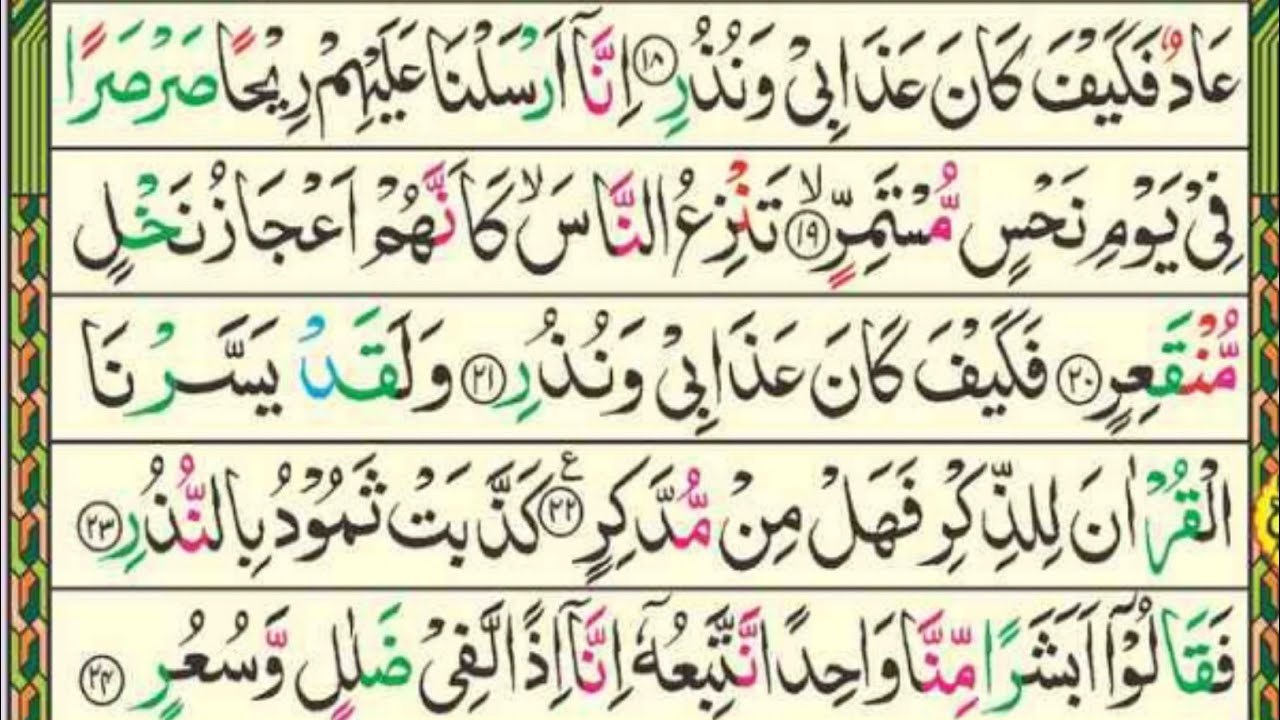 عَادٌ فَكَيْفَ كَانَ عَذَابِيْ وَنُذُرِ ﴿۱۸﴾ اِنَّآ اَرْسَلْنَا عَلَيْهِمْ رِيْحًا صَرْصَرًا
فِيْ يَوْمِ نَحْسٍ مُّسْتَمِرٍّ ۙ﴿۱۹﴾ تَنْزِعُ النَّاسَ ۙ كَاَنَّهُمْ اَعْجَازُ نَخْلٍ
مُّنْقَعِرٍ ﴿۲۰﴾ فَكَيْفَ كَانَ عَذَابِيْ وَنُذُرِ ﴿۲۱﴾ وَلَقَدْ يَسَّرْنَا
الْقُرْاٰنَ لِلذِّكْرِ فَهَلْ مِنْ مُّدَّكِرٍ ۧ﴿۲۲﴾ كَذَّبَتْ ثَمُوْدُ بِالنُّذُرِ ﴿۲۳﴾
فَقَالُوْٓا اَبَشَرًا مِّنَّا وَاحِدًا نَّتَّبِعُهٗٓ اِنَّآ اِذًا لَّفِيْ ضَلٰلٍ وَّسُعُرٍ ﴿۲۴﴾